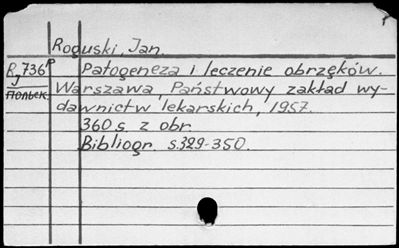 Roguski, Jan.
R 736
Patogeneza i leczenie obrzęków.
J
Польск.
Warszawa, Państwowy zakład wy-
dawnictw lekarskich, 1957.
360 s. z obr.
Bibliogr. s.329-350.